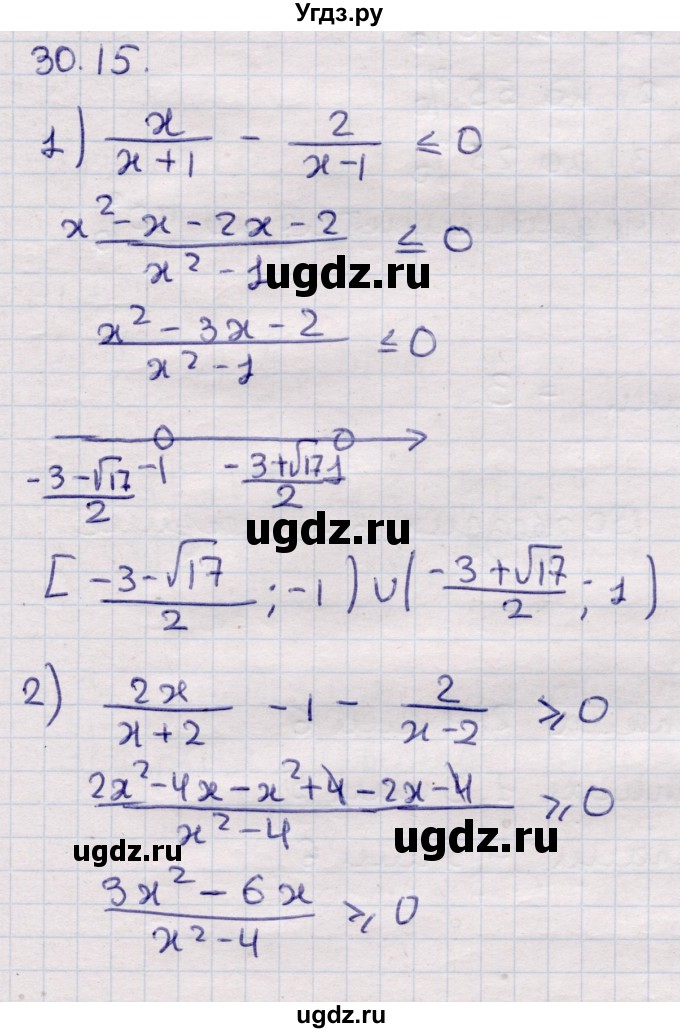 Угдз.ру
30.15.
1) x/(x+1) - 2/(x-1) ≤ 0
(x² - x - 2x - 2)/(x² - 1) ≤ 0
ugdz.ru
(x² - 3x - 2)/(x² - 1) ≤ 0
(-3-√17)/2 -1 (-3+√17)/2 1
ugdz.ru
[(-3-√17)/2; -1) ∪ ((-3+√17)/2; 1)
2) 2x/(x+2) - 1 - 2/(x-2) ⩾ 0
(2x² - 4x - x² + 4 - 2x - 4)/(x² - 4) ⩾ 0
ugdz.ru ugdz.ru
(3x² - 6x)/(x² - 4) ⩾ 0
ugdz.ru